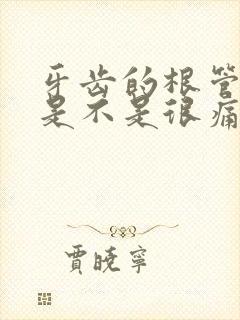 牙齿的根管
是不是很痛
贾晓宁